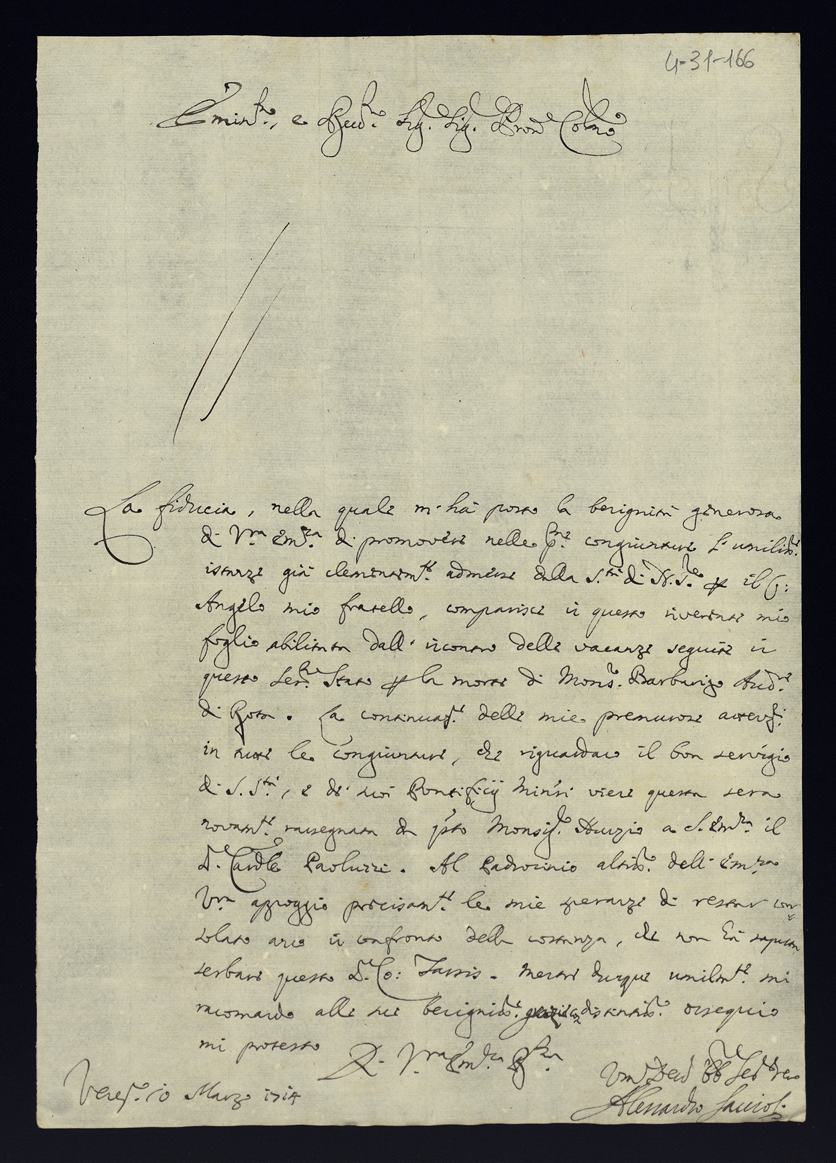 4-31-166
Emin.mo, e Rev.mo Sig. Sig. Pron Colmo
La fiducia, nella quale m'ha posto la benignità generosa
di V.ra Em.za di promovere nelle congiunture l'umiliss.e
istanze già clementem.te admesse dalla S.tà di N. S.re il
Angelo mio fratello, comparisce in questo riverente mio
foglio abilitata dall'incontro delle vacanze seguite in
questo Ser.mo Stato la morte di Mons.r Barbarigo Aud.re
di Rota. La continuaz.e delle mie premurose
in tutte le congiunture, che riguardano il bon servigio
di S. S.tà, e de' suoi Pontificij Min.ri viene questa sera
novam.te rassegnata da q.sto Monsig.r Nunzio a S. Em.za il
S.r Card.le Paoluzzi. Al Padrocinio altiss.o dell'Em.za
V.ra appoggio precisam.te le mie speranze di restar con=
solato anco in confronto della costanza, che non hà saputa
serbare questo S.r Co: Tassis. Mentre dunque umilm.te mi
racomando alle sue benigniss.e grazie distintiss.o ossequio
mi protesto
Di V.ra Em.za R.ma
Venez.a 10 Marzo 1714
Um.o Dev.o Obb.o Ser.e
Alessandro